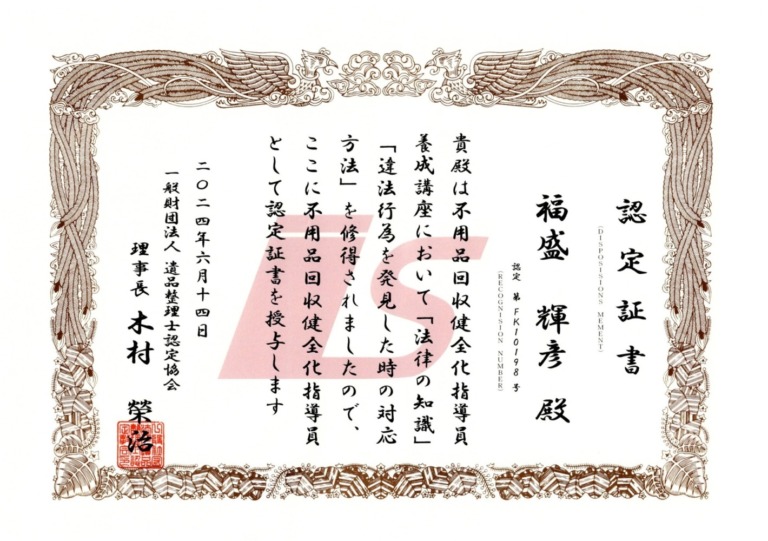 認定証書
(DISPOSISIONS MEMENT)
福盛 輝彦 殿
認定 第 FK10198 号
(RECOGNISION NUMBER)
貴殿は不用品回収健全化指導員
養成講座において「法律の知識」
「違法行為を発見した時の対応
方法」を修得されましたので、
ここに不用品回収健全化指導員
として認定証書を授与します
二〇二四年六月十四日
一般財団法人 遺品整理士認定協会
理事長 木村 榮治
is